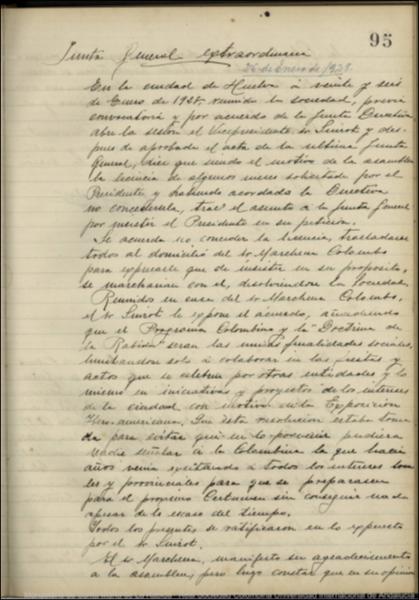 95
Junta General extraordinaria
26 de Enero de 1928
En la ciudad de Huelva á veinte y seis
de Enero de 1928 reunida la sociedad, previa
convocatoria y por acuerdo de la Junta Directiva
abre la sesión el Vicepresidente Sr Siurot y des-
pues de aprobada el acta de la ultima Junta
General, dice que siendo el motivo de la asamblea
la licencia de algunos meses solicitada por el
Presidente y habiendo acordado la Directiva
no concederla, trae el asunto á la Junta General
por insistir el Presidente en su petición.
Se acuerda no conceder la licencia, trasladarse
todos al domicilio del Sr Marchena Colombo
para expresarle que de insistir en su proposito,
se marcharian con él, disolviendose la Sociedad.
Reunidos en casa del Sr Marchena Colombo,
el Sr Siurot le expone el acuerdo, añadiendo
que el Programa Colombino y la "Doctrina de
la Rabida" seran las unicas finalidades sociales,
limitandose solo á colaborar en las fiestas y
actos que se celebren por otras entidades y lo
mismo en iniciativas y proyectos de los intereses
de la ciudad con motivo de la Exposición
Ibero-americana. Que esta resolucion estaba toma-
da para evitar que en lo porvenir pudiera
nadie señalar á la Colombina la que hacia
años venia excitando á todos los intereses loca-
les y provinciales para que se preparasen
para el proximo Certamen sin conseguir nada
apesar de lo escaso del tiempo.
Todos los presentes se ratificaron en lo expuesto
por el Sr Siurot.
El Sr Marchena, manifestó su agradecimiento
a la asamblea, pero hizo constar que en su opinion